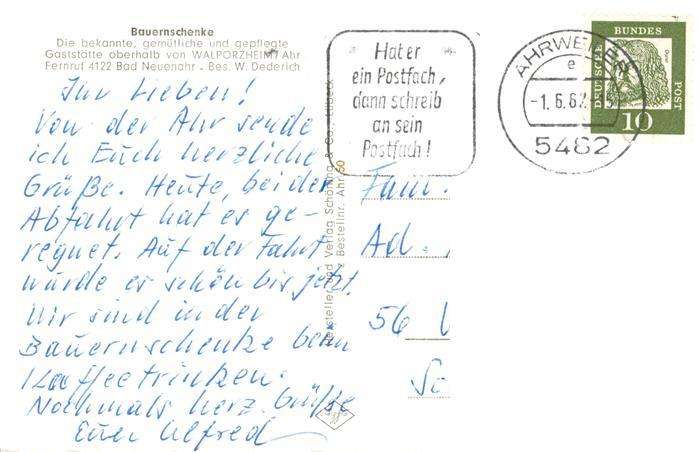 Bauernschenke
Die bekannte, gemütliche und gepflegte
Gaststätte oberhalb von WALPORZHEIM / Ahr
Fernruf 4122 Bad Neuenahr . Bes. W. Dederich
Ihr Lieben!
Von der Ahr sende
ich Euch herzliche
Grüße. Heute, bei der
Abfahrt hat es ge-
regnet. Auf der Fahrt
wurde es schön bis jetzt.
Wir sind in der
Bauernschenke beim
Kaffeetrinken.
Nochmals herz. Grüße
Euer Alfred
Hersteller und Verlag Schöning & Co., Lübeck
Bestellnr. Ahr 50
Hat er
ein Postfach,
dann schreib
an sein
Postfach!
AHRWEILER
e
-1.6.62
5482
DEUTSCHE
BUNDES
POST
Dürer
10
Fam.
Ad.
56